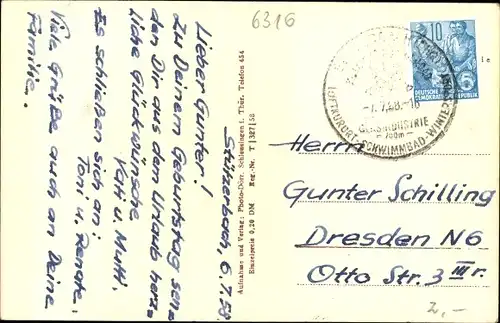 6316
Stützerbach, 6.7.58
Lieber Gunter!
Zu Deinem Geburtstag sen-
den Dir aus dem Urlaub herz-
liche Glückwünsche
Vati u. Mutti.
Es schließen sich an:
Toni u. Renate.
Viele Grüße auch an Deine
Familie.
Aufnahme und Verlag: Photo-Dörr, Schleusingen i. Thür. Telefon 454
Einzelpreis 0,20 DM Reg.-Nr. T | 327 | 58
10
DEUTSCHE
DEMOKRATISCHE REPUBLIK
5
-7.7.58.-16
GLASINDUSTRIE
700m
LUFTKURORT SCHWIMMBAD-WINTER
Herrn
Gunter Schilling
Dresden N6
Otto Str. 3 III r.
2,-